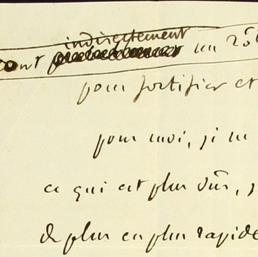 indirectement
ont un rôl
pour fortifier et
pour moi, je n
ce qui est plus sûr, j
de plus en plus rapide